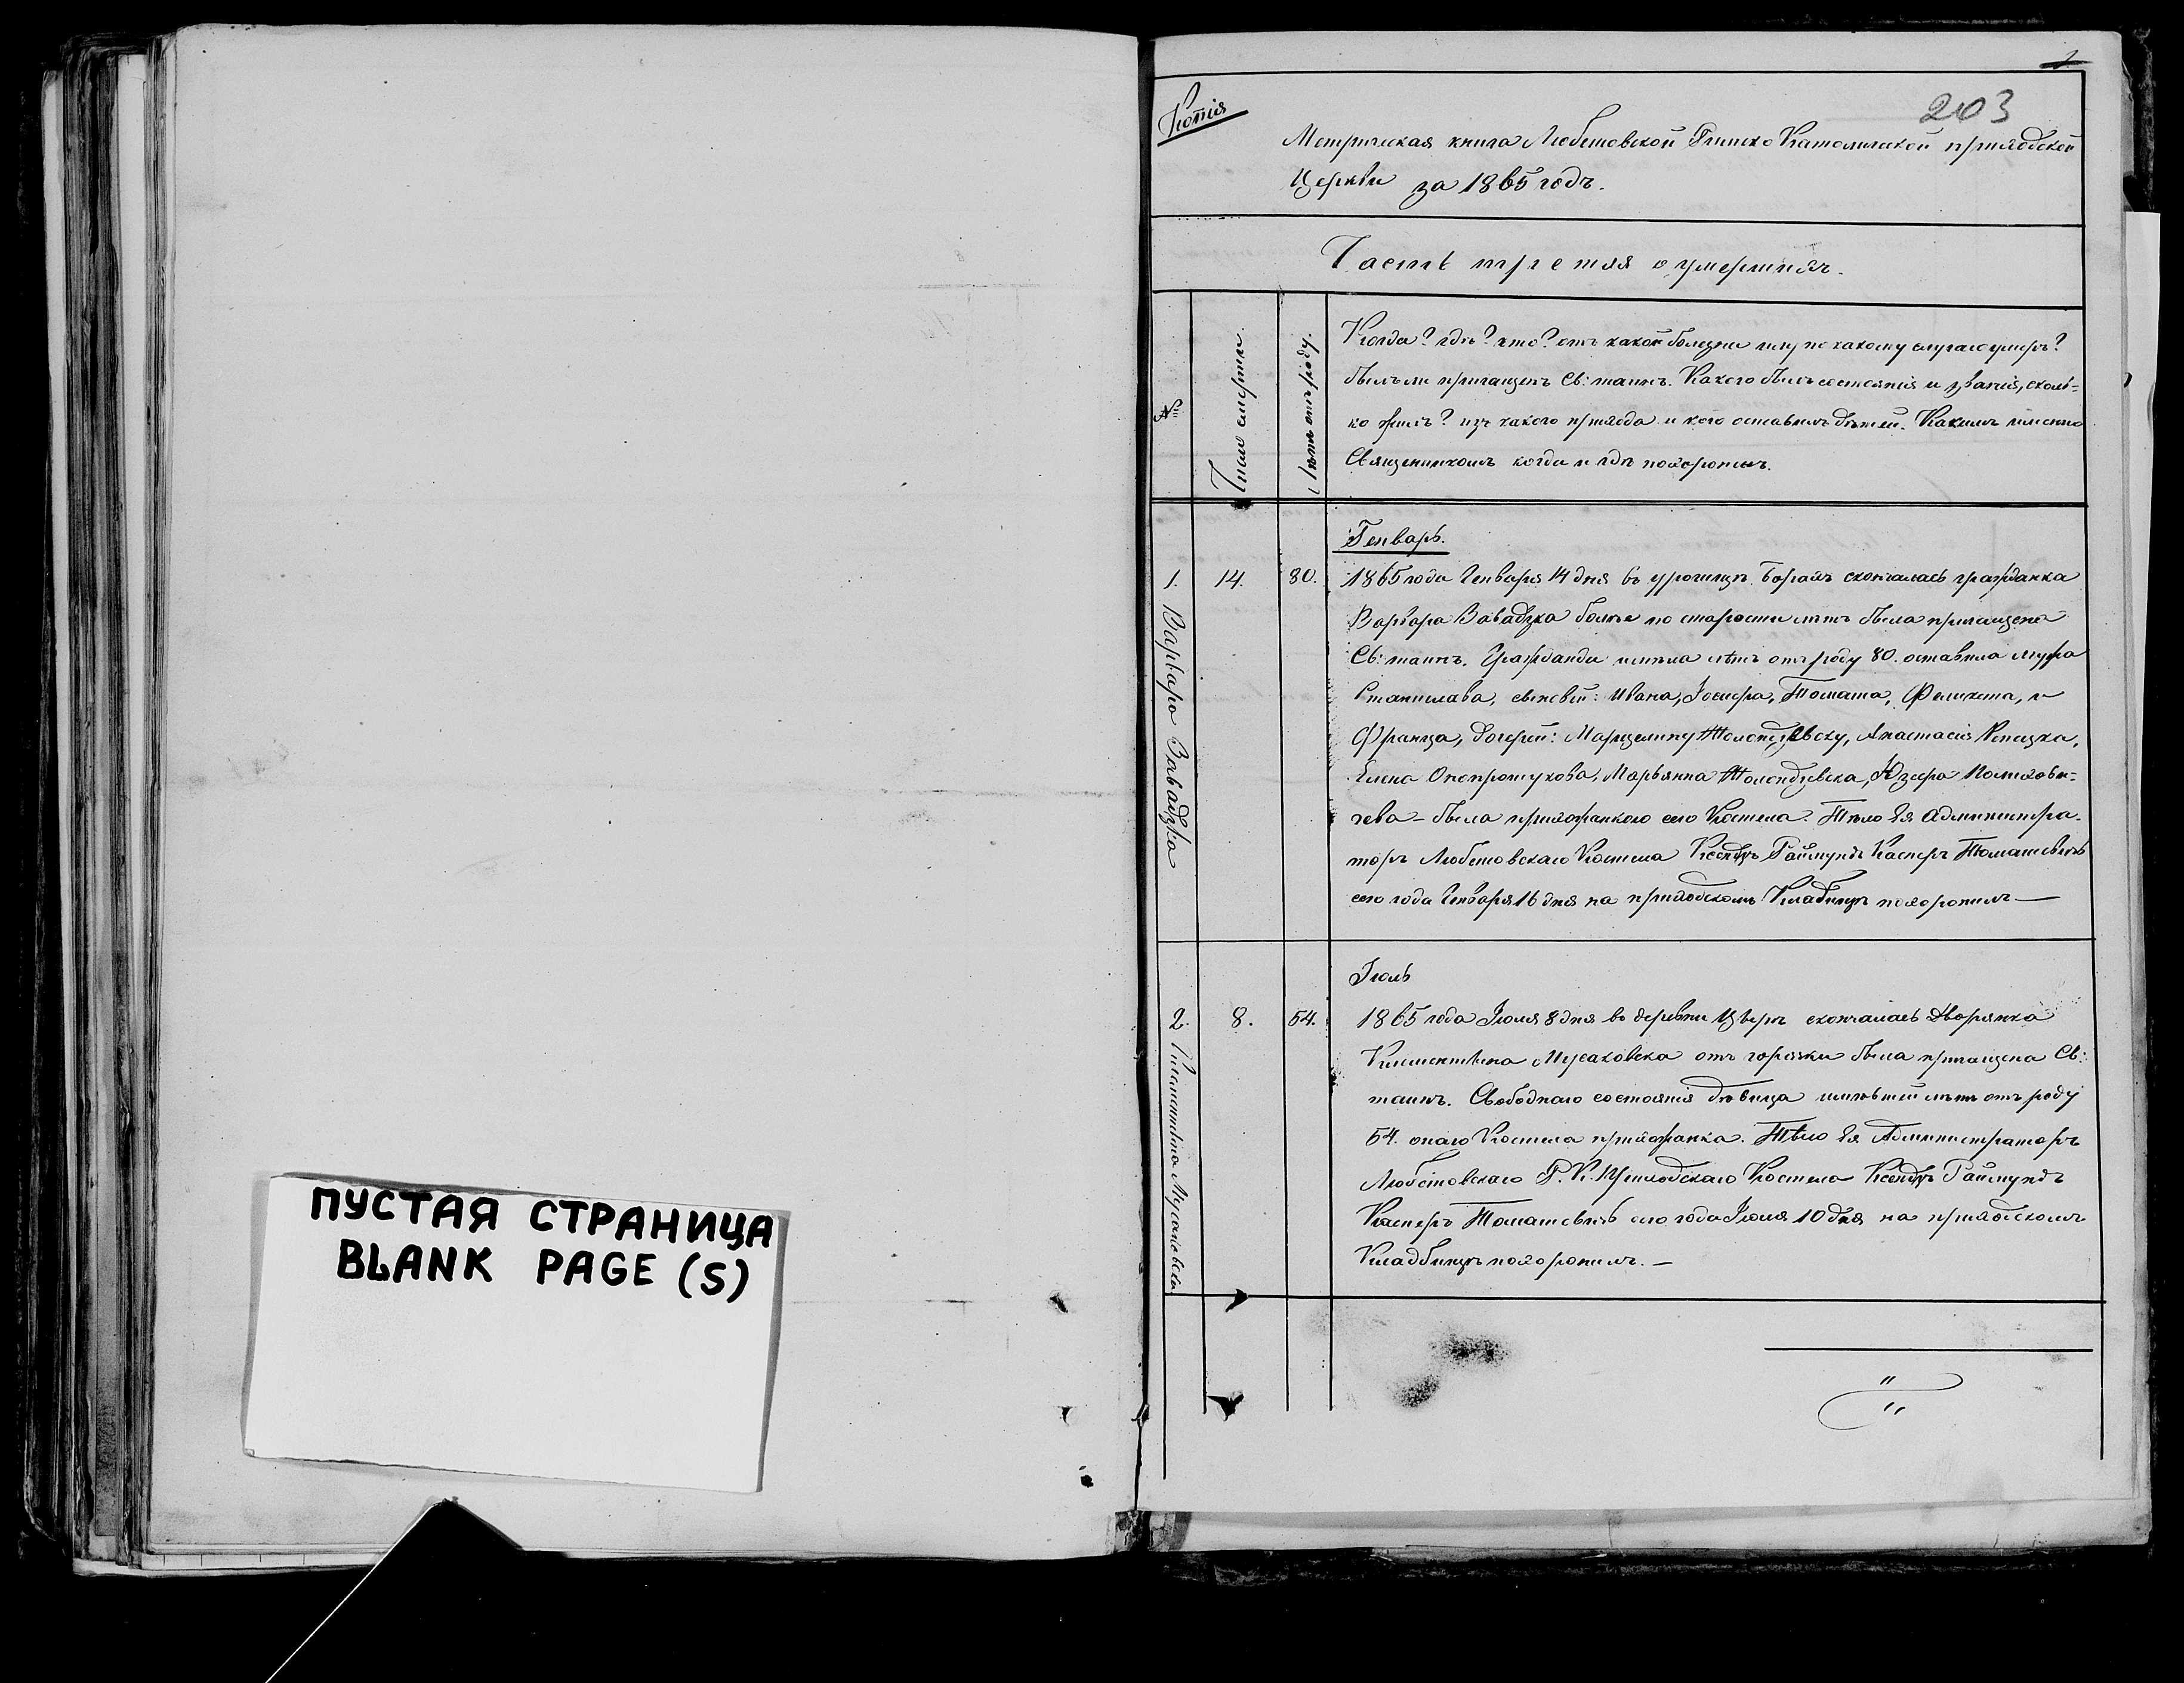 ПУСТАЯ СТРАНИЦА
BLANK PAGE (S)
Копія
203
Метрическая книга Любешовской Римско Католической приходской
Церкви за 1865 годъ.
Часть третяя о умершихъ.
№
Число смерти.
Лѣта отъ роду.
Когда? гдѣ? кто? отъ какой болезни или по какому случаю умеръ?
былъ ли приганщенъ Св: таинъ. Какого былъ состоянія и званія, сколь=
ко жилъ? изъ какого прихода и кого оставилъ дѣтей. Какимъ именно
Священникомъ когда и гдѣ похороненъ.
Генварь.
1. Варвара Завадзка
14.
80.
1865 года Генваря 14 дня въ урочищѣ скончалась гражданка
Варвара Завадзка болѣе по старости лѣтъ была приганщена
Св: таинъ. Гражданка имѣла лѣтъ отъ роду 80. оставила мужа
Станислава, сыновей: Ивана, Іосифа, Томаша, Феликса, и
Франца, дочерей: Анастасія
Елена Марьянна Юзефа
чева – была прихожанкою сего Костела. Тѣло Ея Администра-
торъ Любешовскаго Костела Ксендзъ Раймундъ Касперъ Томашевичъ
сего года Генваря 16 дня на приходскомъ Кладбищѣ похоронилъ —
Іюль
2. Климентина Мусаковска
8.
54.
1865 года Іюля 8 дня во деревни скончалась Дворянка
Климентина Мусаковска отъ горячки была приганщена Св:
таинъ. Свободнаго состоянія дѣвица имѣвшей лѣтъ отъ роду
54. онаго Костела прихожанка. Тѣло Ея Администраторъ
Любешовскаго Р. К. Приходскаго Костела Ксендзъ Раймундъ
Касперъ Томашевичъ сего года Іюля 10 дня на приходскомъ
Кладбищѣ похоронилъ. —